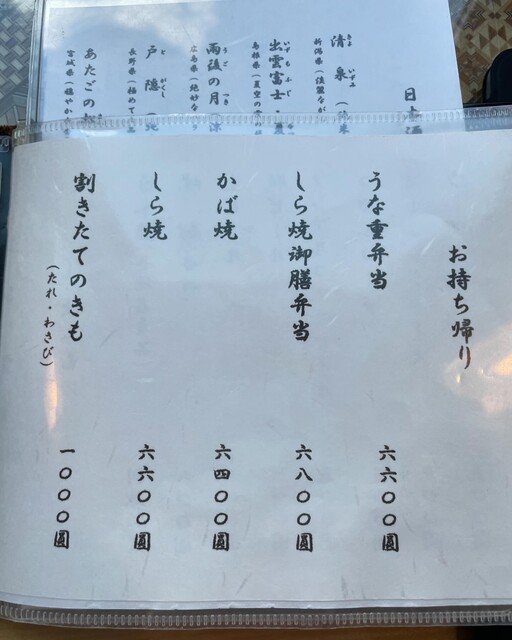 日本酒
清泉
新潟県（淡麗な
出雲富士
島根県（星空の
雨後の月
広島県（絶妙な
戸隠
長野県（極めて
あたごの
宮城県（穏やか
お持ち帰り
うな重弁当 六六〇〇圓
しら焼御膳弁当 六八〇〇圓
かば焼 六四〇〇圓
しら焼 六六〇〇圓
割きたてのきも 一〇〇〇圓
（たれ・わさび）